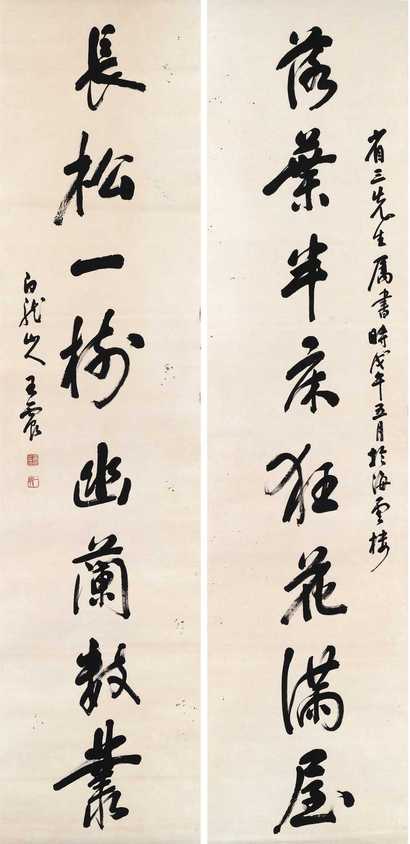 省三先生属書時戊午五月於海雲楼
落葉半床狂花滿屋
長松一樹幽蘭数叢
白龍山人王震